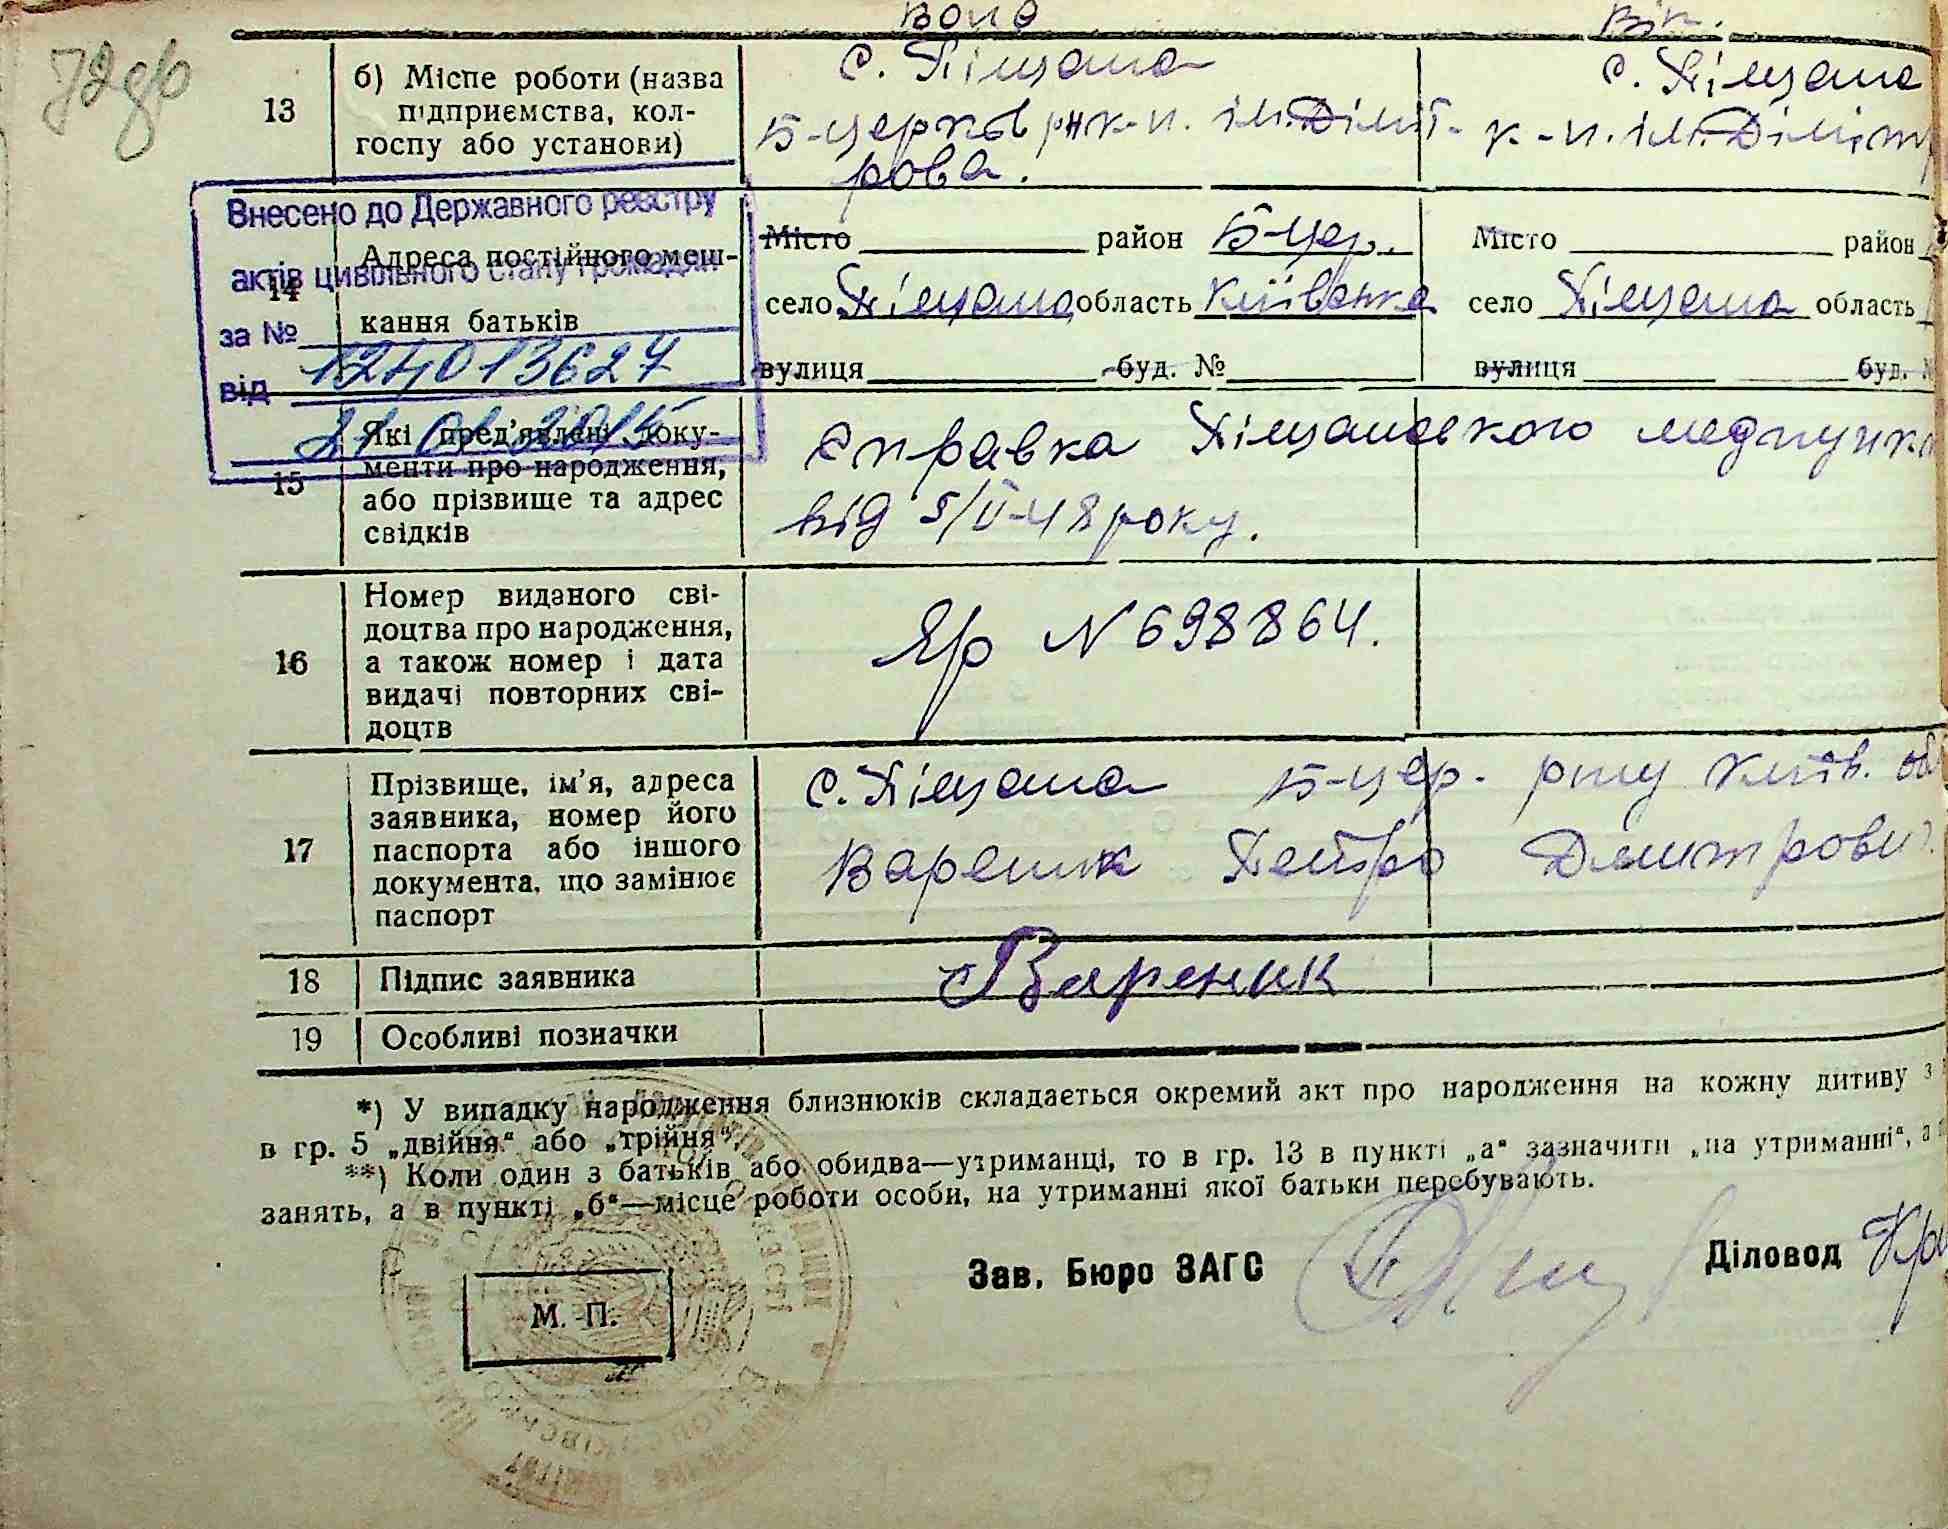 72зв
13
б) Місце роботи (назва
підприємства, кол-
госпу або установи)
Вона
с. Піщана
Б-церков р-н к-п. ім. Діміт-
рова.
Він.
с. Піщана
к-п. ім. Діміт
Внесено до Державного реєстру
актів цивільного стану громадян
за №
124013627
від
21 01 2015
14
Адреса постійного меш-
кання батьків
Місто район Б-цер.
село Піщана область Київська
вулиця буд. №
Місто район
село Піщана область
вулиця буд. №
15
Які пред'явлені доку-
менти про народження,
або прізвище та адрес
свідків
Справка Піщановского медпунк
від 5/V-48 року.
16
Номер виданого сві-
доцтва про народження,
а також номер і дата
видачі повторних сві-
доцтв
Яр N 698864.
17
Прізвище, ім'я, адреса
заявника, номер його
паспорта або іншого
документа, що замінює
паспорт
с. Піщана Б-цер. р-ну Київ. об
Вареник Петро Дмитрович
18
Підпис заявника
Вареник
19
Особливі позначки
*) У випадку народження близнюків складається окремий акт про народження на кожну дитину з
в гр. 5 „двійня“ або „трійня“.
**) Коли один з батьків або обидва—утриманці, то в гр. 13 в пункті „а“ зазначити „на утриманні“, а
занять, а в пункті „б“—місце роботи особи, на утриманні якої батьки перебувають.
Зав. Бюро ЗАГС
Діловод
М. П.